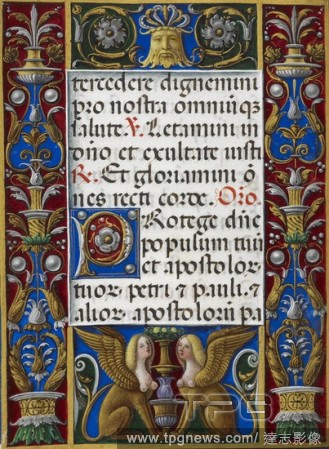 tercedere dignemini
pro nostra omniuq̃ʒ
salute ℣. Letamini in
dño et exultate iusti
℟. Et gloriamini õ
nes recti corde. Orõ.
Rotege dñe
populum tuũ
et apostolor̃
tuor̃ petri ⁊ pauli. ⁊
alior̃ apostolorũ pa
TPG
www.tpgnews.com/ 達志影像